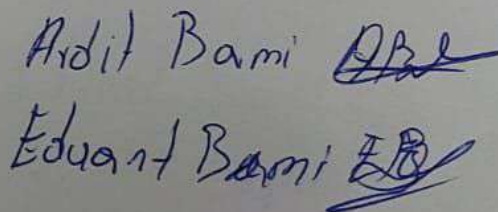 Ardit Bami
Eduart Bami